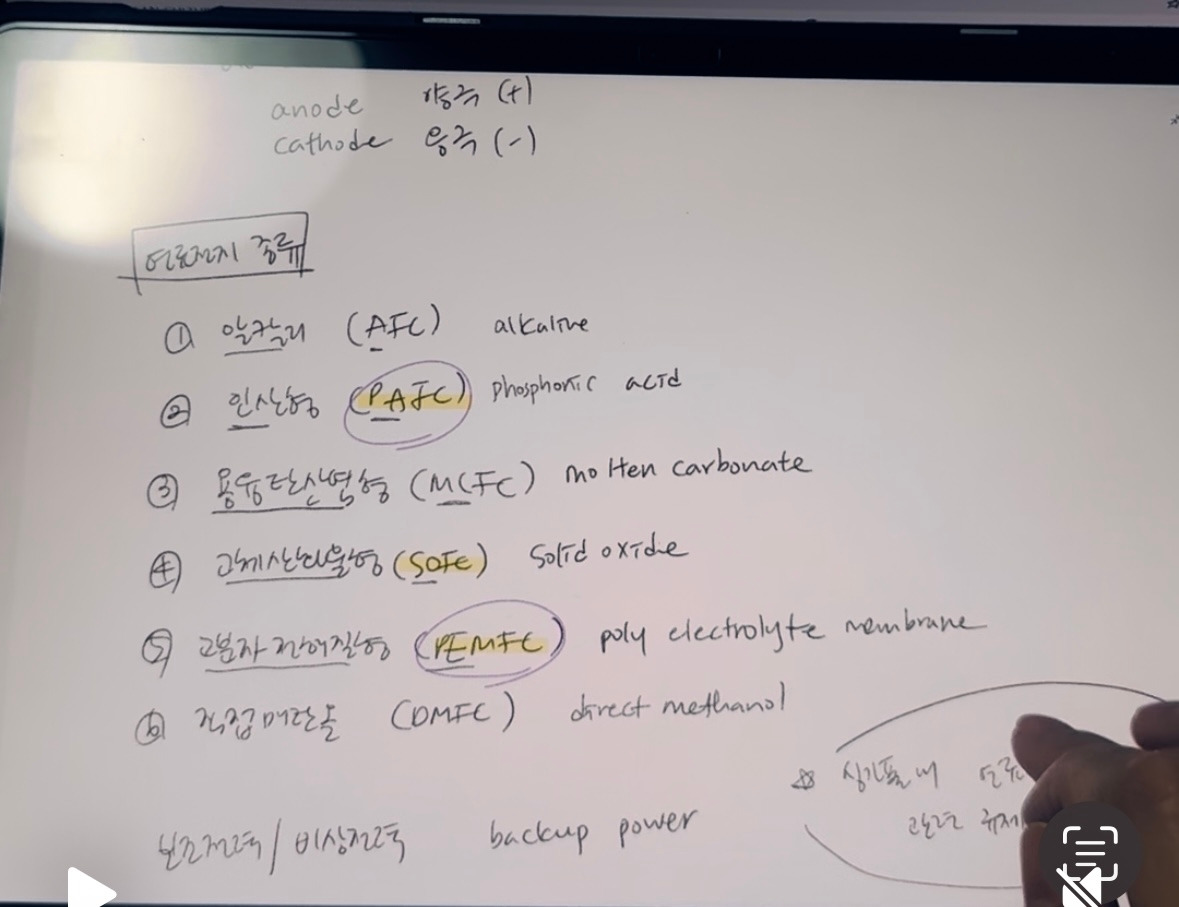 anode 양극 (+)
cathode 음극 (-)
연료전지 종류
① 알카리 (AFC) alkaline
② 인산형 (PAFC) phosphoric acid
③ 용융탄산염형 (MCFC) molten carbonate
④ 고체산화물형 (SOFC) solid oxide
⑤ 고분자 전해질형 (PEMFC) poly electrolyte membrane
⑥ 직접메탄올 (DMFC) direct methanol
보조전력/비상전력 backup power
싱가폴 내 연료
관련 규제